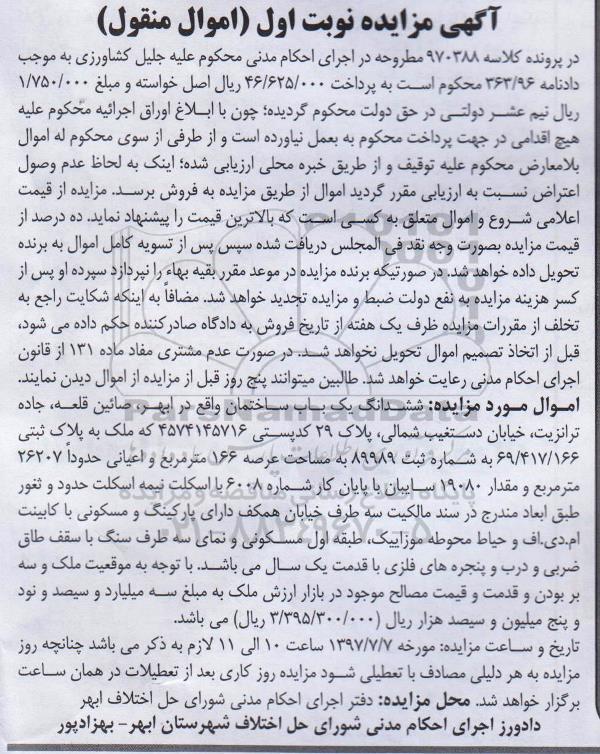 آگهی مزایده نوبت اول (اموال منقول)
در پرونده کلاسه ۹۷۰۳۸۸ مطروحه در اجرای احکام مدنی محکوم علیه جلیل کشاورزی به موجب
دادنامه ۳۶۳/۹۶ محکوم است به پرداخت ۴۶/۶۲۵/۰۰۰ ریال اصل خواسته و مبلغ ۱/۷۵۰/۰۰۰
ریال نیم عشر دولتی در حق دولت محکوم گردیده؛ چون با ابلاغ اوراق اجرائیه محکوم علیه
هیچ اقدامی در جهت پرداخت محکوم به بعمل نیاورده است و از طرفی از سوی محکوم له اموال
بلامعارض محکوم علیه توقیف و از طریق خبره محلی ارزیابی شده؛ اینک به لحاظ عدم وصول
اعتراض نسبت به ارزیابی مقرر گردید اموال از طریق مزایده به فروش برسد. مزایده از قیمت
اعلامی شروع و اموال متعلق به کسی است که بالاترین قیمت را پیشنهاد نماید. ده درصد از
قیمت مزایده بصورت وجه نقد فی المجلس دریافت شده سپس پس از تسویه کامل اموال به برنده
تحویل داده خواهد شد. در صورتیکه برنده مزایده در موعد مقرر بقیه بهاء را نپردازد سپرده او پس از
کسر هزینه مزایده به نفع دولت ضبط و مزایده تجدید خواهد شد. مضافاً به اینکه شکایت راجع به
تخلف از مقررات مزایده ظرف یک هفته از تاریخ فروش به دادگاه صادرکننده حکم داده می شود،
قبل از اتخاذ تصمیم اموال تحویل نخواهد شد. در صورت عدم مشتری مفاد ماده ۱۳۱ از قانون
اجرای احکام مدنی رعایت خواهد شد. طالبین میتوانند پنج روز قبل از مزایده از اموال دیدن نمایند.
اموال مورد مزایده: ششدانگ یک باب ساختمان واقع در ابهر، صائین قلعه، جاده
ترانزیت، خیابان دستغیب شمالی، پلاک ۲۹ کدپستی ۴۵۷۴۱۴۵۷۱۶ که ملک به پلاک ثبتی
۶۹/۴۱۷/۱۶۶ به شماره ثبت ۸۹۹۸۹ به مساحت عرصه ۱۶۶ مترمربع و اعیانی حدوداً ۲۶۲۰۷
مترمربع و مقدار ۱۹۰۸۰ سایبان با پایان کار شماره ۶۰۰۸ با اسکلت نیمه اسکلت حدود و ثغور
طبق ابعاد مندرج در سند مالکیت سه طرف خیابان همکف دارای پارکینگ و مسکونی با کابینت
ام.دی.اف و حیاط محوطه موزاییک، طبقه اول مسکونی و نمای سه طرف سنگ با سقف طاق
ضربی و درب و پنجره های فلزی با قدمت یک سال می باشد. با توجه به موقعیت ملک و سه
بر بودن و قدمت و قیمت مصالح موجود در بازار ارزش ملک به مبلغ سه میلیارد و سیصد و نود
و پنج میلیون و سیصد هزار ریال (۳/۳۹۵/۳۰۰/۰۰۰ ریال) می باشد.
تاریخ و ساعت مزایده: مورخه ۱۳۹۷/۷/۷ ساعت ۱۰ الی ۱۱ لازم به ذکر می باشد چنانچه روز
مزایده به هر دلیلی مصادف با تعطیلی شود مزایده روز کاری بعد از تعطیلات در همان ساعت
برگزار خواهد شد. محل مزایده: دفتر اجرای احکام مدنی شورای حل اختلاف ابهر
دادورز اجرای احکام مدنی شورای حل اختلاف شهرستان ابهر- بهزادپور